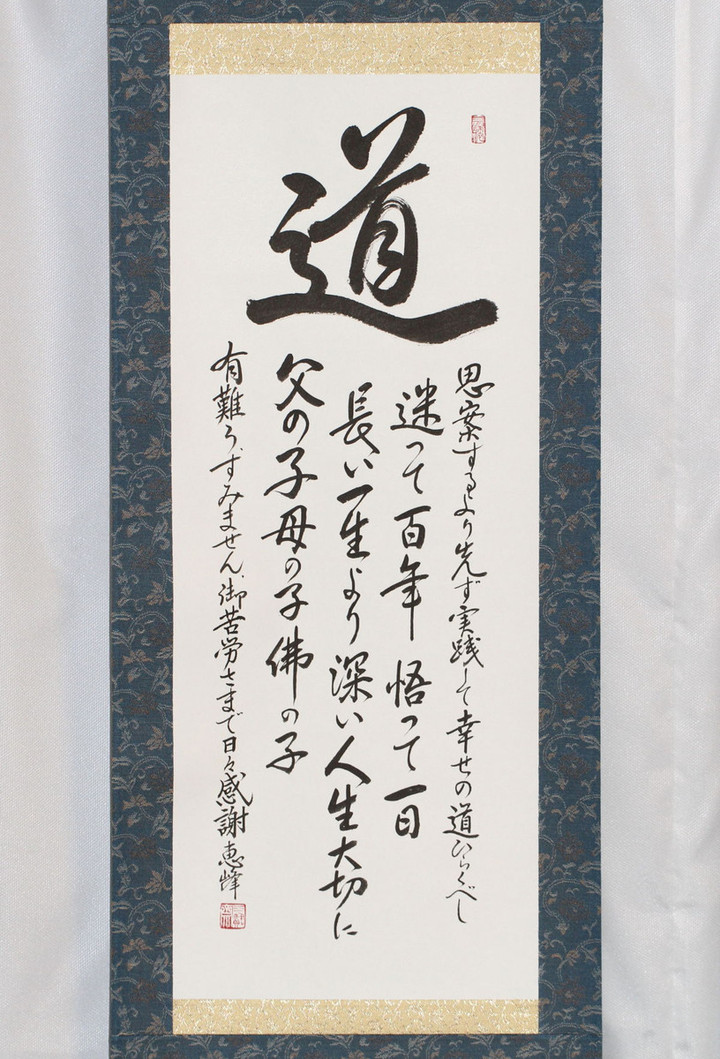 道
思案するより先ず実践して幸せの道ひらくべし
迷って百年 悟って一日
長い一生より深い人生大切に
父の子母の子佛の子
有難うすみません御苦労さまで日々感謝 恵峰